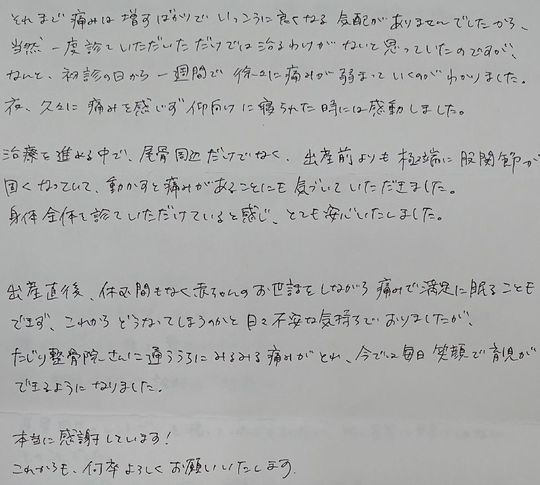 それまで痛みは増すばかりで いっこうに良くなる 気配がありませんでしたから、
当然 一度診ていただいただけでは治るわけがないと思っていたのですが、
なんと、初診の日から一週間で 徐々に痛みが弱まっていくのがわかりました。
夜、久々に 痛みを感じず 仰向けに寝られた時には感動しました。
治療を進める中で、尾骨周辺だけでなく、出産前よりも極端に股関節が
固くなっていて、動かすと痛みがあることにも気づいていただきました。
身体全体を診ていただけていると感じ、とても安心いたしました。
出産直後、休む間もなく赤ちゃんのお世話をしながら 痛みで満足に眠ることも
できず、これからどうなってしまうのかと日々不安な気持ちでおりましたが、
たじり整骨院さんに通ううちにみるみる痛みがとれ、今では毎日笑顔で育児が
できるようになりました。
本当に感謝しています!
これからも、何卒よろしくお願いいたします。